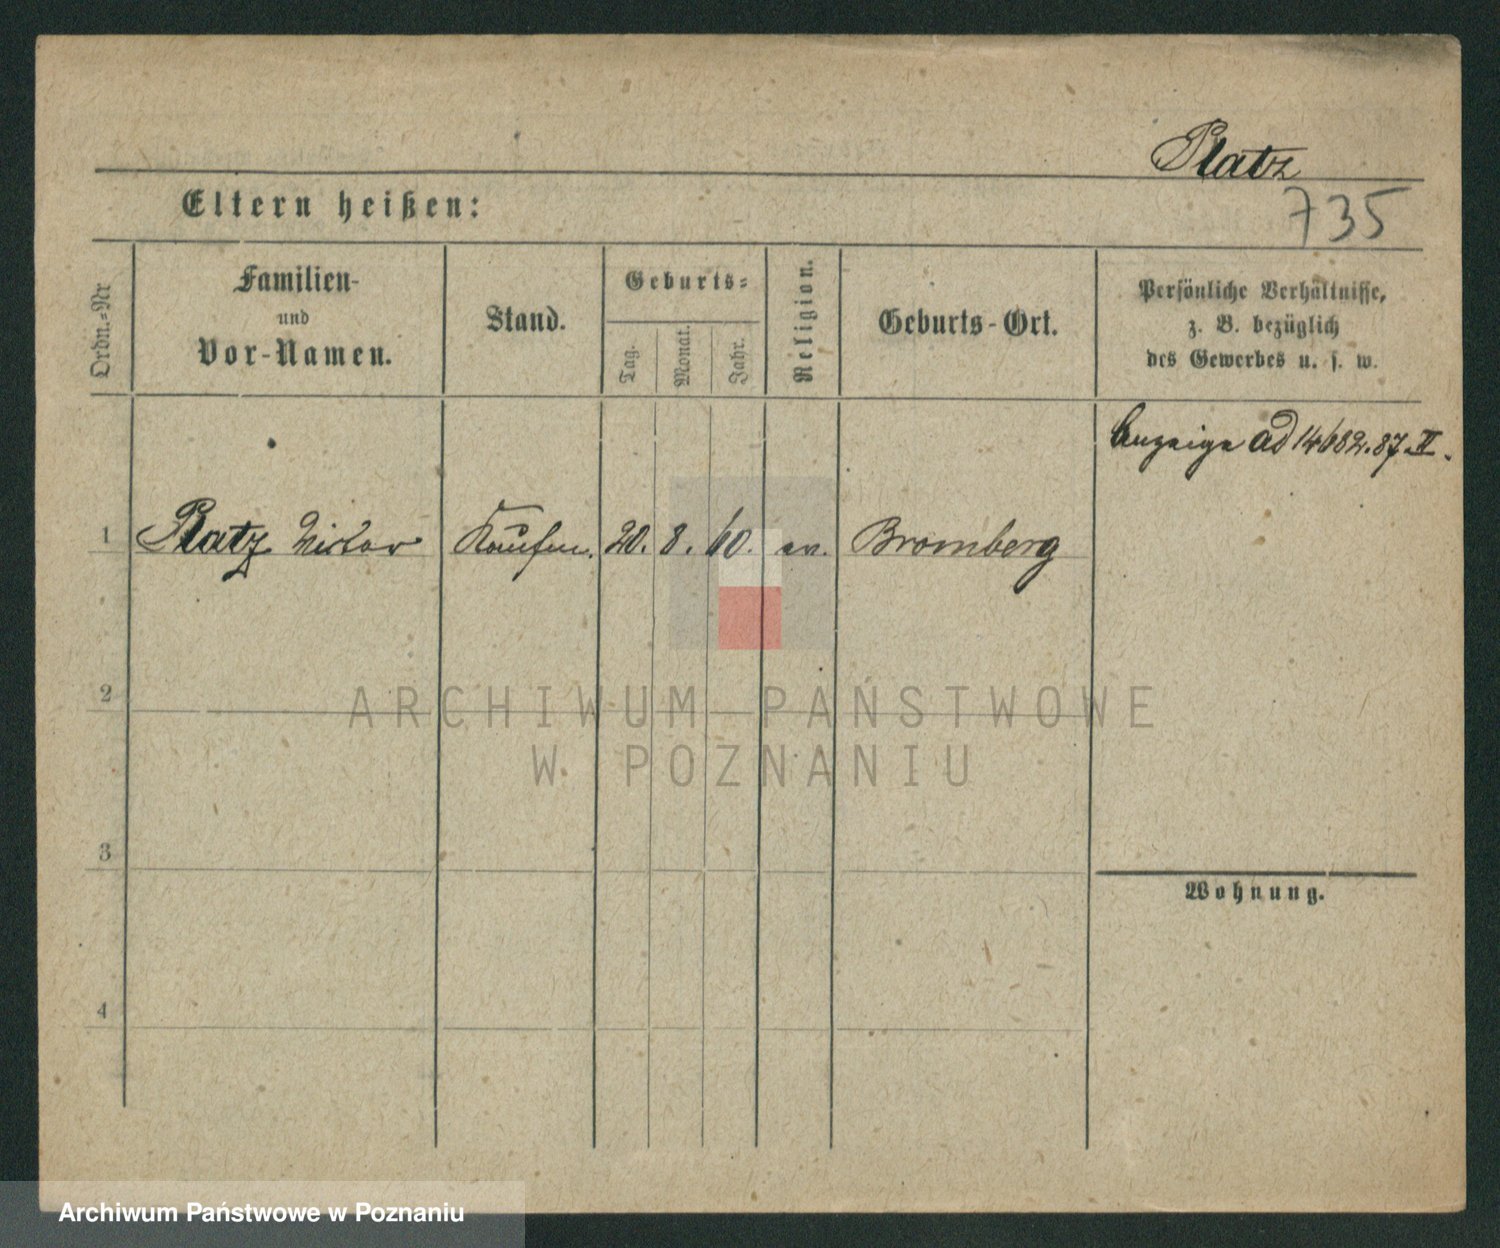 Platz
735
Eltern heißen:
Ordn.-Nr
Familien-
und
Vor-Namen.
Stand.
Geburts-
Tag.
Monat.
Jahr.
Religion.
Geburts-Ort.
Persönliche Verhältnisse,
z. B. bezüglich
des Gewerbes u. s. w.
Anzeige ad 14682.87.II.
1 Platz Victor Kaufm. 20. 8. 60. ev. Bromberg
2
ARCHIWUM PAŃSTWOWE
W POZNANIU
3
Wohnung.
4
Archiwum Państwowe w Poznaniu